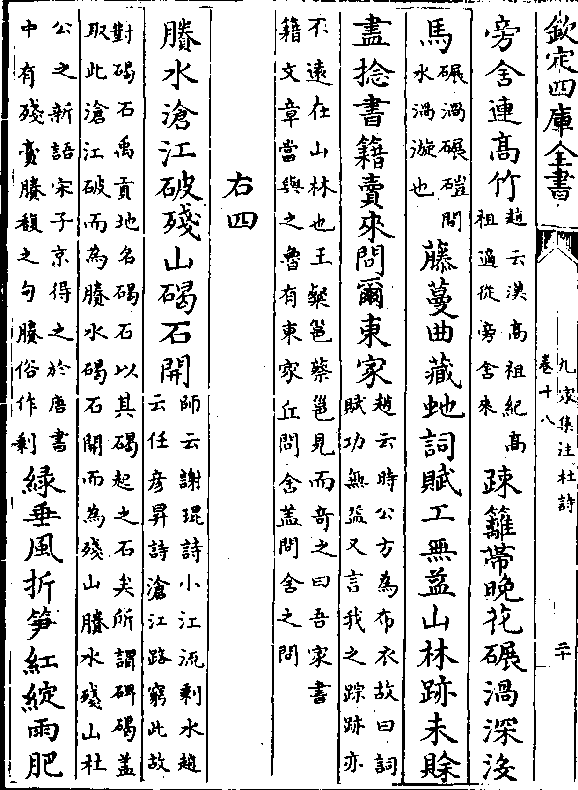 欽定四庫全書
九家集注杜詩
卷十八
二十
旁舍連髙竹趙云漢高祖紀髙
祖適從旁舍來疎籬帶晚花碾渦深没
馬水渦漩也藤蔓曲藏虵詞賦工無益山林跡未賖
盡捻書籍賣來問爾東家趙云時公方為布衣故曰詞
賦功無益又言我之踪跡亦
不遠在山林也王粲邕蔡邕見而竒之曰吾家書
籍文章當與之魯有東家丘問舍盖問舍之問
右四
賸水滄江破殘山碣石開師云謝琨詩小江流剩水趙
云任彦昇詩滄江路窮此故
對碣石禹貢地名碣石以其碣起之石矣所謂碑碣盖
取此滄江破而為賸水碣石開而為殘山賸水殘山杜
公之新語宋子京得之於唐書
中有殘膏賸馥之句賸俗作剩緑垂風折笋紅綻雨肥